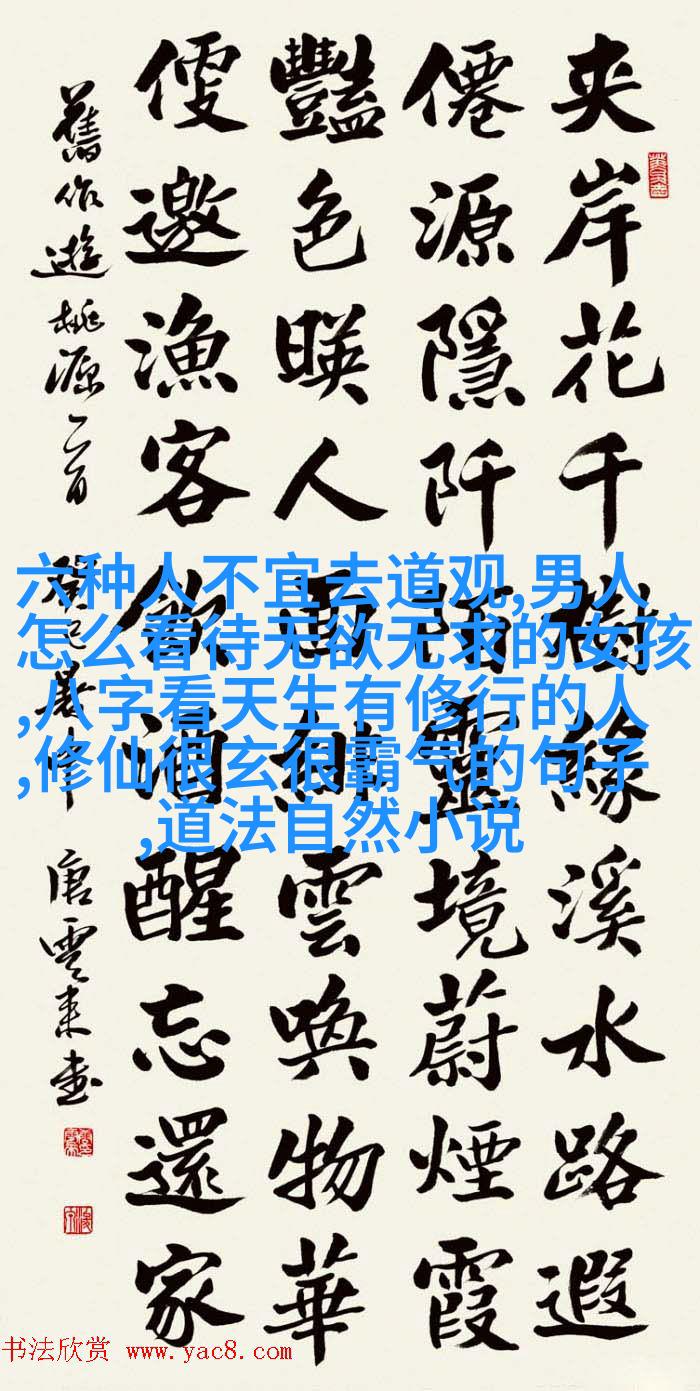 夾岸花千樹緣溪水路遐
僊源隱阡陌靈境蔚煙霞
豔色暎人面雲喚物華
便邀漁客飲酒醒忘還家
舊作遊桃源二首 癸巳 唐雲来書
六种人不宜去道观,男人
怎么看待无欲无求的女孩
,八字看天生有修行的人
,修仙很玄很霸气的句子
,道法自然小说
书法欣赏 www.yac8.com